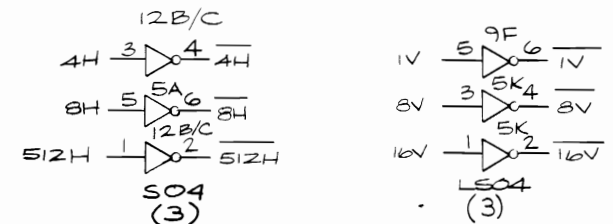 12B/C
4H 3 4 4H
5A
8H 5 6 8H
12B/C
512H 1 2 512H
S04
(3)
9F
1V 5 6 1V
5K
8V 3 4 8V
5K
16V 1 2 16V
LS04
(3)